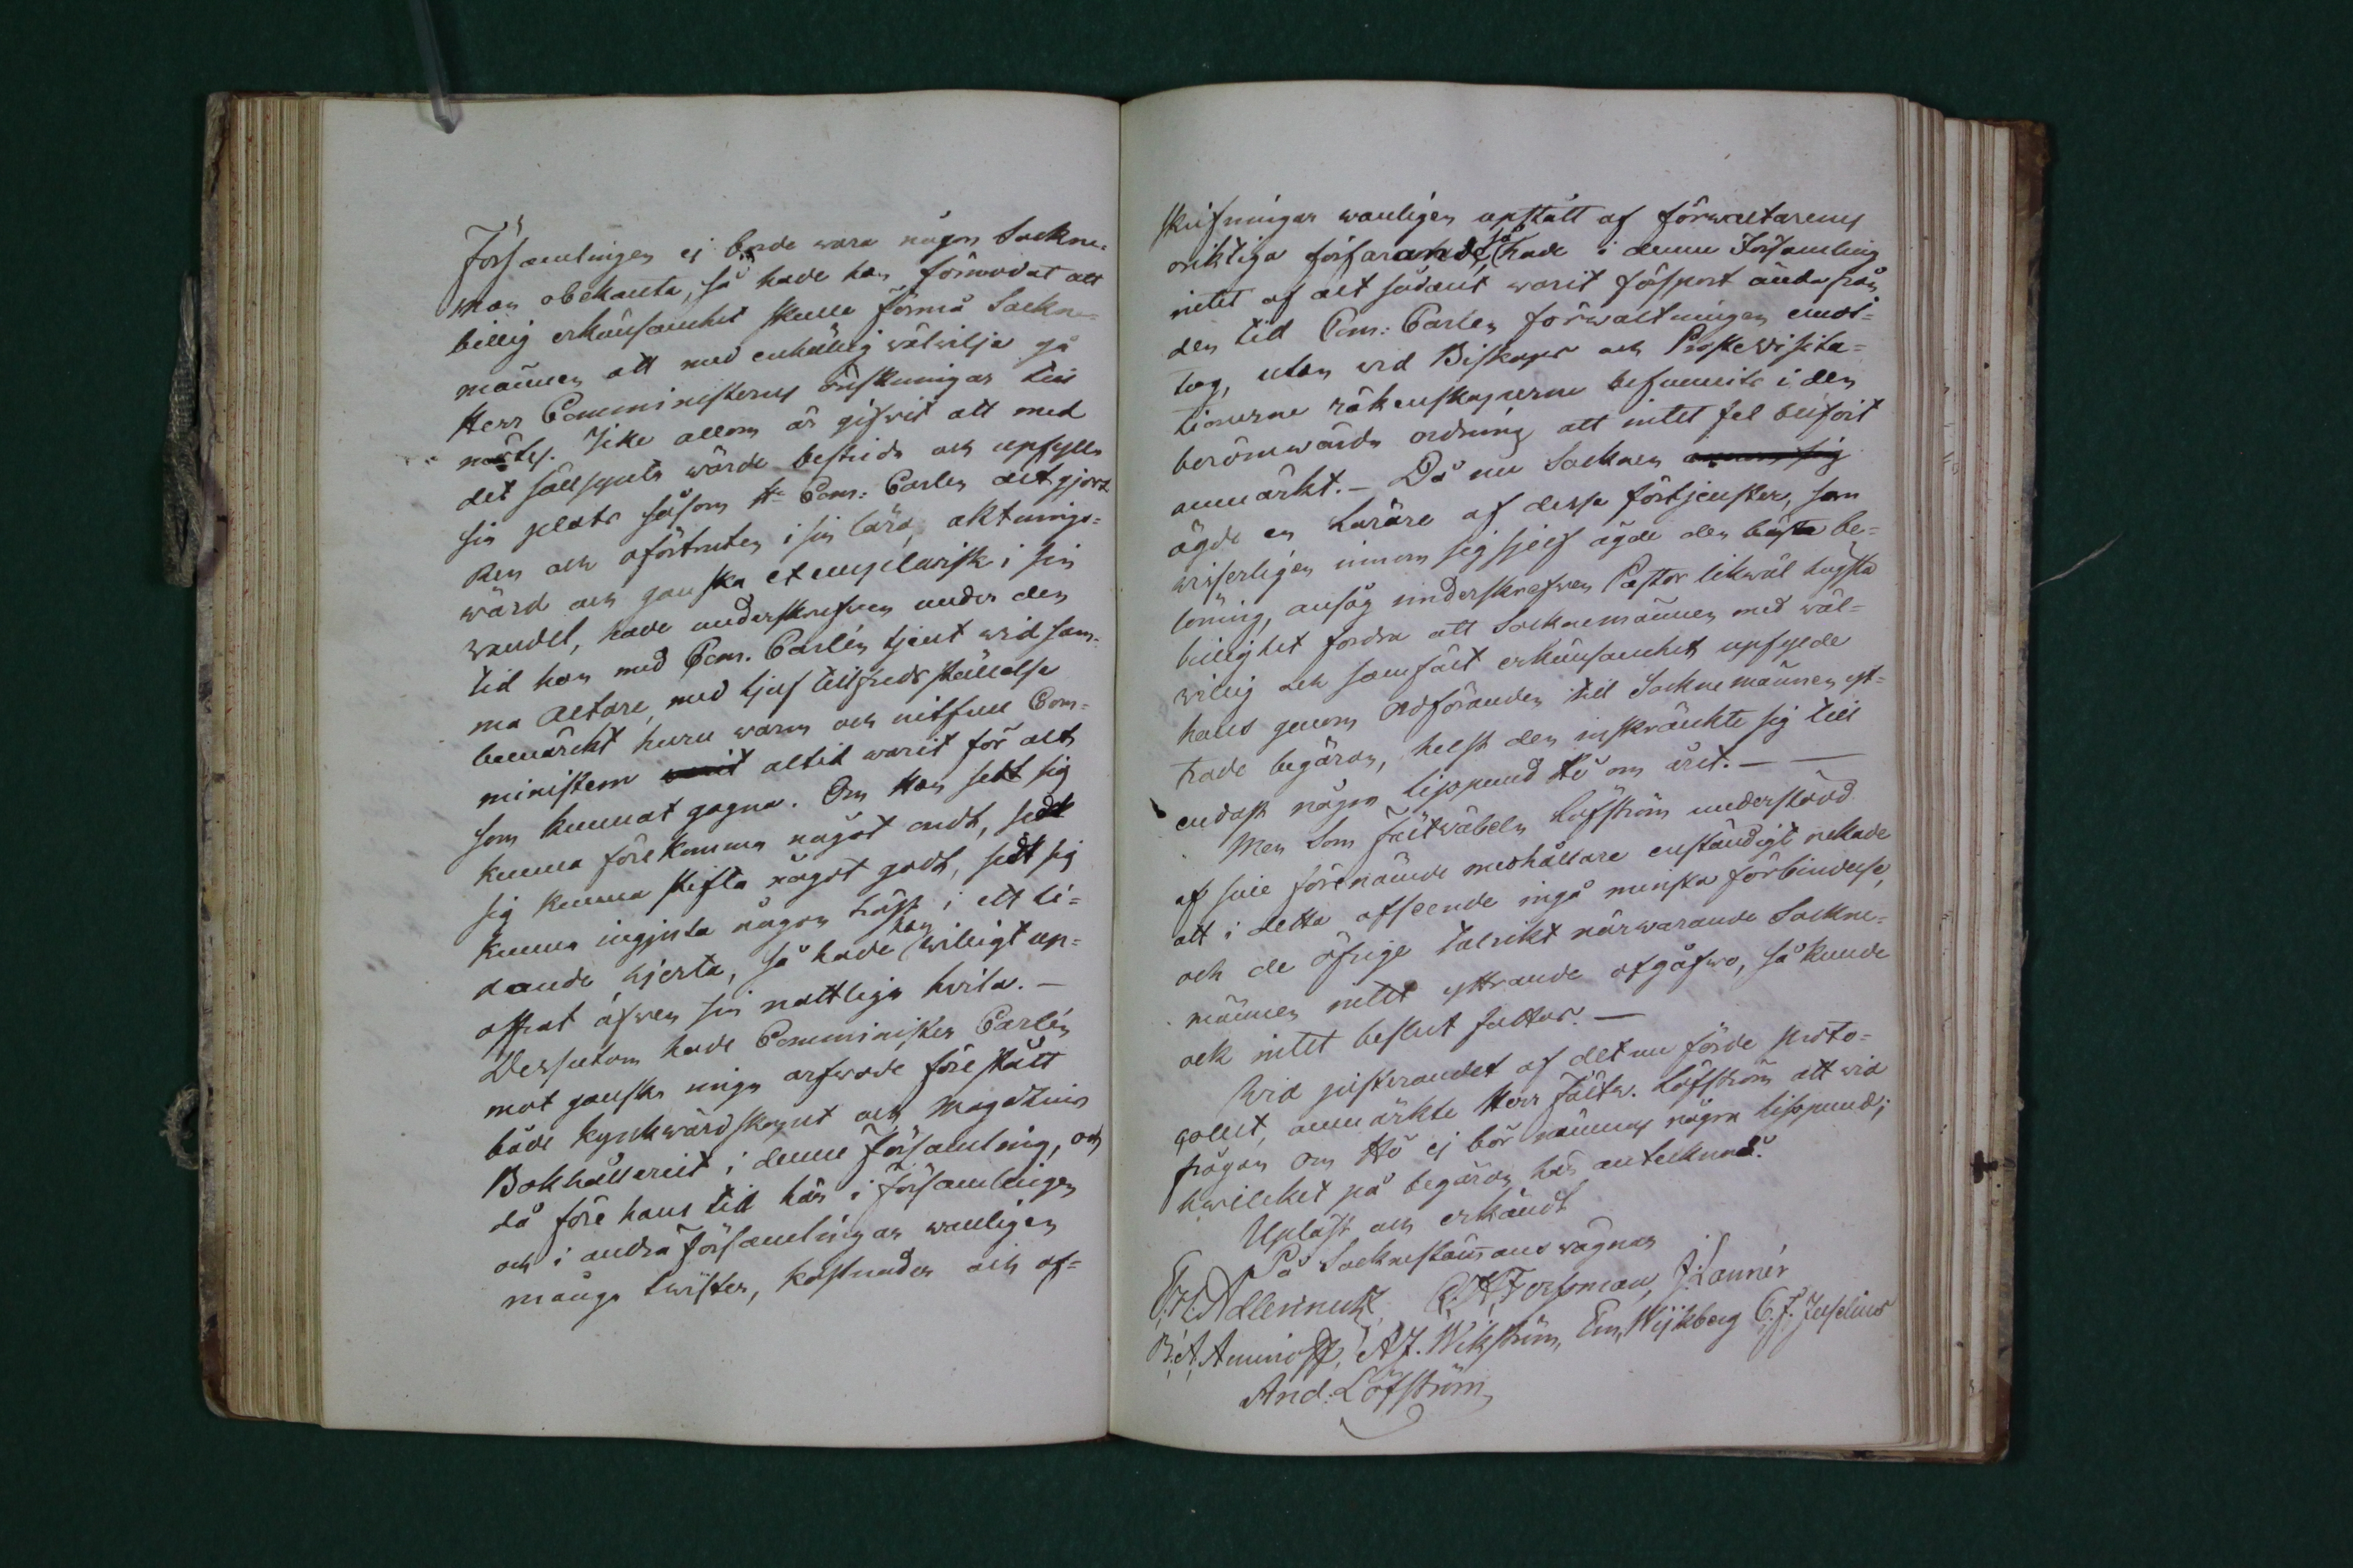 Församlingen ej borde wara någon Sockne-
man obekanta, så hade han förmodat att
billig erkänsamhet skulle förmå Sockne-
männen att med enhällig wälwilja gå
Herr Comministerns önskningar till
mötes. Icke allom är gifwit att med
det sällsynta wärde bestrida och upfylla
sin plats såsom Hr Com: Carlén det gjort
Ren och oförtruten i sin lära, aktnings-
wärd och ganska exemplarisk i sin
wandel, hade underskrefwen under den
tid han med Com. Carlén tjent wid sam-
ma Altare, med ljuf tillfredsställelse
bemärckt huru warm och nitfull Com-
ministern altid warit för alt
som kunnat gagna. Om Han sedt sig
kunna förekomma något ondt, sedt
sig kunna stifta något godt, sedt sig
kunna ingjuta någon tröst i ett li-
dande hjerta, så hade han willigt up-
offrat äfwen sin nattliga hwila. —
Dessutom hade Comminister Carlén
mot ganska ringa arfwode förestått
både Kyrkwärdskapet och Magazins
Bokhålleriet i denne Församling, och
då före hans tid här i församlingen
och i andra församlingar wanligen
många twister, kostnader och af-
skrifningar wanligen upstått af förwaltarens
oriktiga förfarande, så hade i denne Församling
intet af alt sådant warit försport ända från
den tid Com: Carlén förwaltningen emot-
tog, utan wid Biskops och Prostewisita-
tionerne räkenskaperne befunnits i den
berömwärda ordning att intet fel blifwit
anmärkt. — Då nu Socknen
ägde en Lärare af dessa förtjenster, som
wisserligen innom sig sjelf ägde den bästa be-
löning, ansåg underskrefwen Pastor likwäl högsta
billighet fordra att Socknemännen med wäl-
willig och samfält erkänsamhet upfylde
hans genom Ordföranden till Socknemännen yt-
trade begäran, helst den inskränkte sig till
endast någon lispund Hö om året. — —
Men Som Fältwäbeln Löfström understödd
af sine förenämde medhållare enständigt nekade
att i detta afseende ingå minsta förbindelse,
och de öfrige talrikt närwarande Sockne-
männen intet yttrande afgåfwo, så kunde
ock intet beslut fattas. —
Wid justerandet af det nu förde proto-
collet, anmärkte Herr Fältw. Löfström att wid
frågan om Hö ej bör nämnas någon lispund;
hwilcket på begäran här antecknas.
Upläst och erkändt
På Socknestämmans wägnar
E. H. Adlercreutz, C. H. Forssman, J. Lannér
B. A. Aminoff, A. J. Wikström, Em. Wijkberg C. F. Juselius
And. Löfström